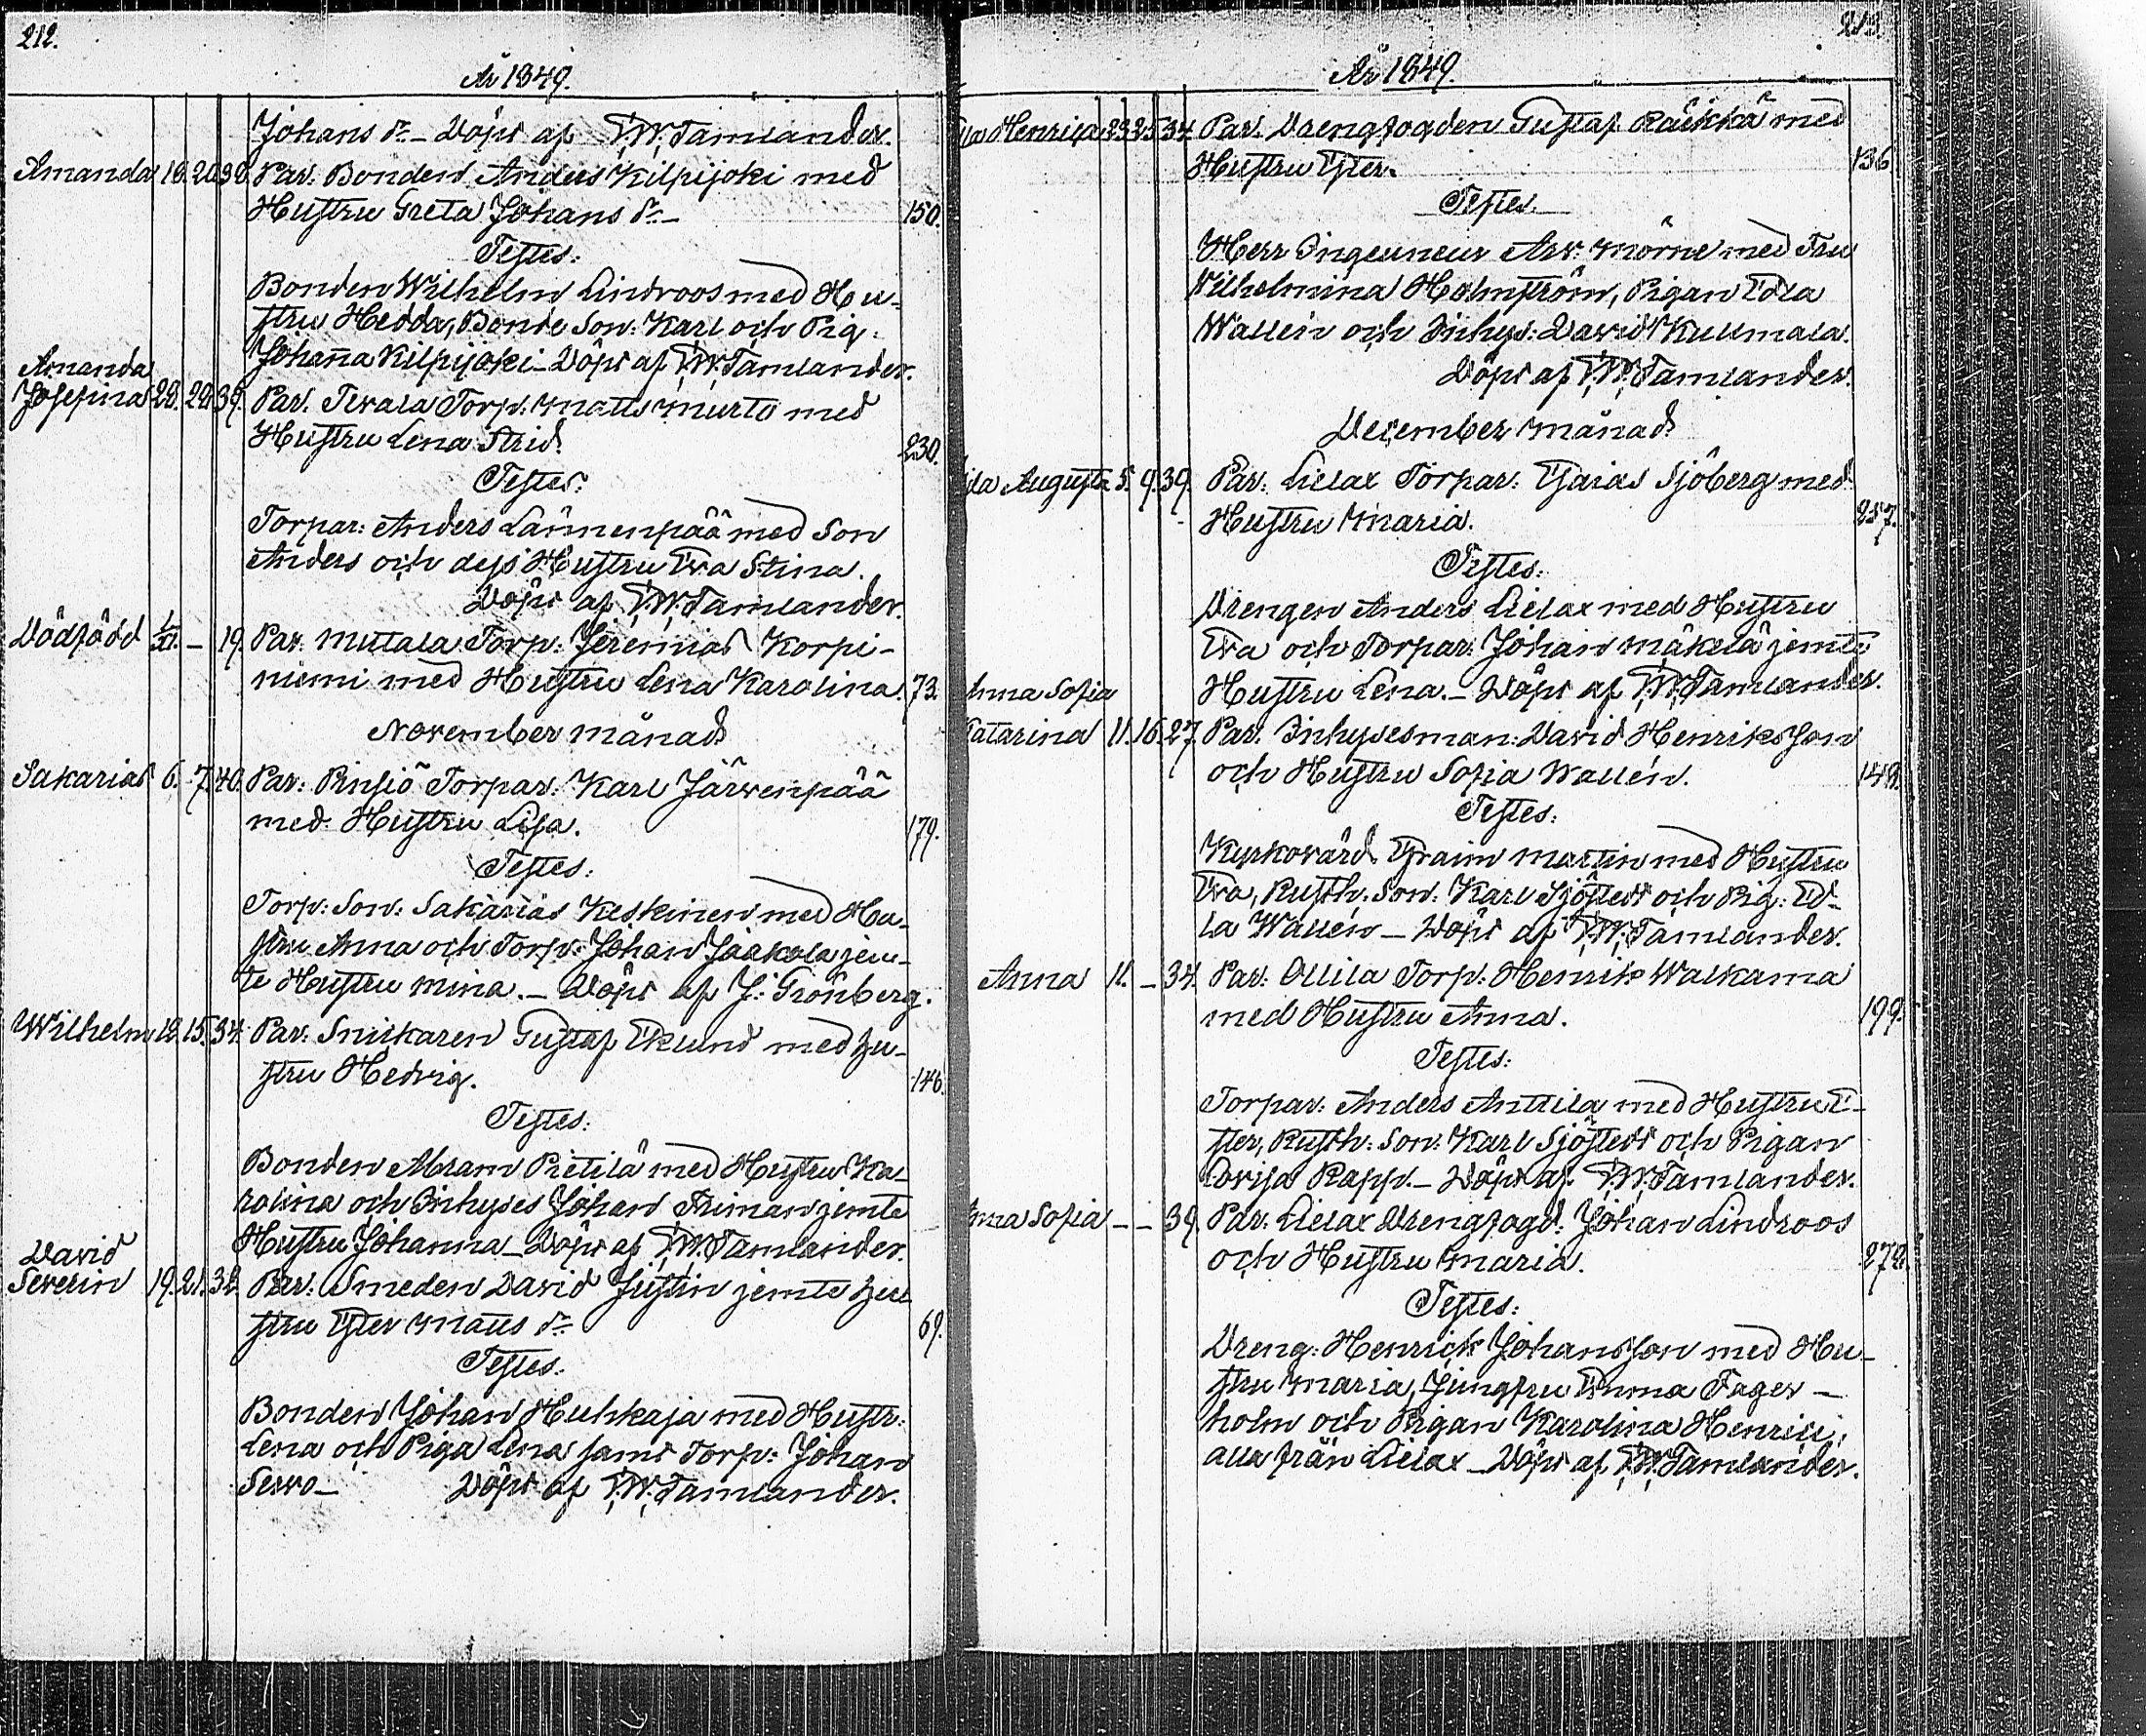 212.
År 1849.
Johans dr. – Döpt af F. W. Tamlander.
Amanda 16. 20. 39. Par: Bonden Anders Kilpijoki med
Hustru Greta Johans dr. – 150.
Testes:
Bonden Wilhelm Lindroos med Hu-
stru Hedda, Bonde Son: Karl och Pig:
Johanna Kilpijoki – Döpt af F. W. Tamlander.
Amanda
Josefina 22. 22. 39. Par. Tervala Torp: Matts Murto med
Hustru Lena Strid. 230.
Testes:
Torpar: Anders Lammenpää med Son
Anders och dess Hustru Eva Stina.
Döpt af F. W. Tamlander.
Dödfödd 1/XI. – 19. Par. Mittala Torp: Jeremias Korpi-
niemi med Hustru Lena Karolina. 73.
November månad
Sakarias 6. 7. 40. Par: Pinsiö Torpar: Karl Järvenpää
med Hustru Lisa. 179.
Testes:
Torp: Son: Sakarias Keskinen med Hu-
stru Anna och Torp: Johan Jaakola jem-
te Hustru Mina. – Döpt af J. Grönberg.
Wilhelm 12. 15. 34. Par: Snickaren Gustaf Eklund med hu-
stru Hedvig. 146.
Testes:
Bonden Abram Pietilä med Hustru Ka-
rolina och Inhyses Johan Friman jemte
Hustru Johanna – Döpt af F. W. Tamlander.
David
Severin 19. 21. 32. Par: Smeden David Justin jemte hu-
stru Ester Matts dr. 69.
Testes:
Bonden Johan Huhkaja med Hustr:
Lena och Piga Lena samt Torp: Johan
Servo – Döpt af F. W. Tamlander.
213.
År 1849.
Henrica 23. 25. 34. Par. Drengfogden Gustaf Räikkä med
Hustru Ester. 136.
Testes.
Herr Ingenieur Arv: Mörne med Fru
Wilhelmina Holmström, Pigan Edla
Wallén och Inhys: David Kullmala.
Döpt af F. W. Tamlander.
December månad.
Augusta 5. 9. 39. Par. Lielax Torpar: Esaias Sjöberg med
Hustru Maria. 257.
Testes:
Drengen Anders Lielax med Hustru
Eva och Torpar: Johan Mäkelä jemte
Hustru Lena. – Döpt af F. W. Tamlander.
Anna Sofia
Katarina 11. 16. 27. Par. Inhysesman: David Henriksson
och Hustru Sofia Wallén. 148.
Testes:
Kyrkovärd Efraim Martin med Hustru
Eva, Rusth: Son: Karl Sjöstedt och Pig: Ed-
la Wallén – Döpt af F. W. Tamlander.
Anna 11. – 34. Par: Ollila Torp: Henrik Walkama
med Hustru Anna. 199.
Testes:
Torpar: Anders Anttila med Hustru E-
ster, Rusth: Son: Karl Sjöstedt och Pigan
Lovisa Rapp. – Döpt af F. W. Tamlander.
Anna Sofia – – 39. Par: Lielax Drengfogd: Johan Lindroos
och Hustru Maria. 272.
Testes:
Dreng: Henrick Johansson med Hu-
stru Maria, Jungfru Emma Fager-
holm och Pigan Karolina Henrici,
alla från Lielax – Döpt af F. W. Tamlander.